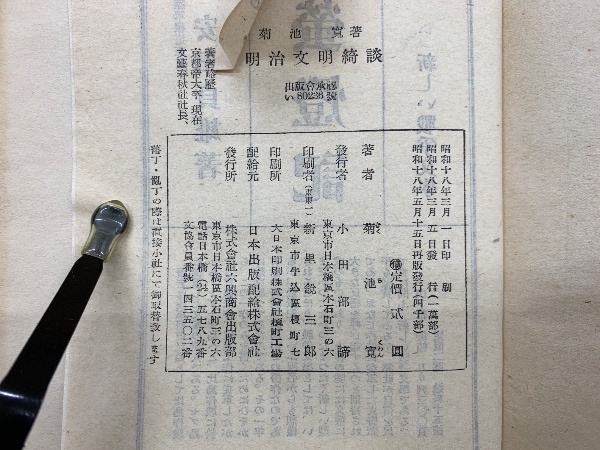 菊池寛著
明治文明綺談
出版会承認い802236號
著者略歴
京都帝大卒、現在
文藝春秋社社長、
昭和十八年三月一日印刷
昭和十八年三月五日發行(一萬部)
昭和十八年五月十五日再版發行(四千部)
定價 貳圓
著者 菊池寛
きくちくわん
發行者 小田部諦
東京市日本橋區本石町三の六
印刷者(東東一) 新里鋭三郎
東京市牛込區榎町七
印刷所 大日本印刷株式會社榎町工場
配給元 日本出版配給株式會社
發行所 株式會社六興商會出版部
東京市日本橋區本石町三の六
電話日本橋(24)五七八九番
文協會員番號一四三五〇二番
落丁・亂丁の際は直接小社にて御取替致します